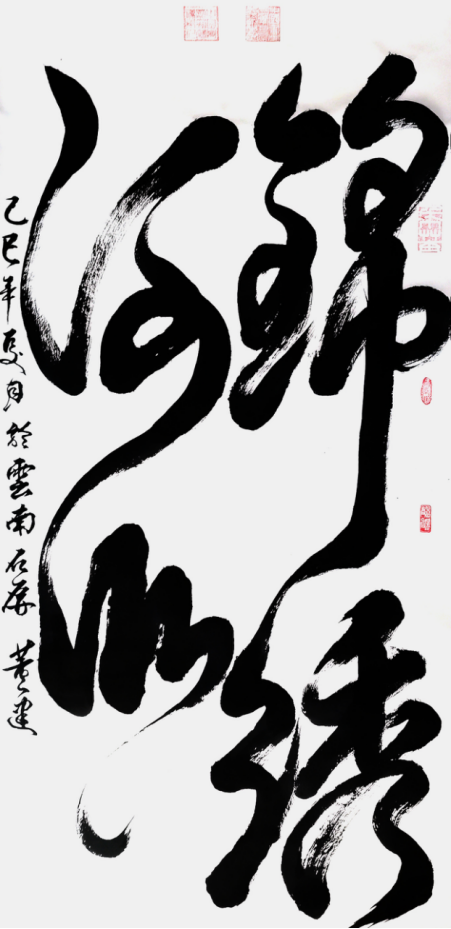 錦綉
河山
乙巳年夏月於雲南石屏 黄建